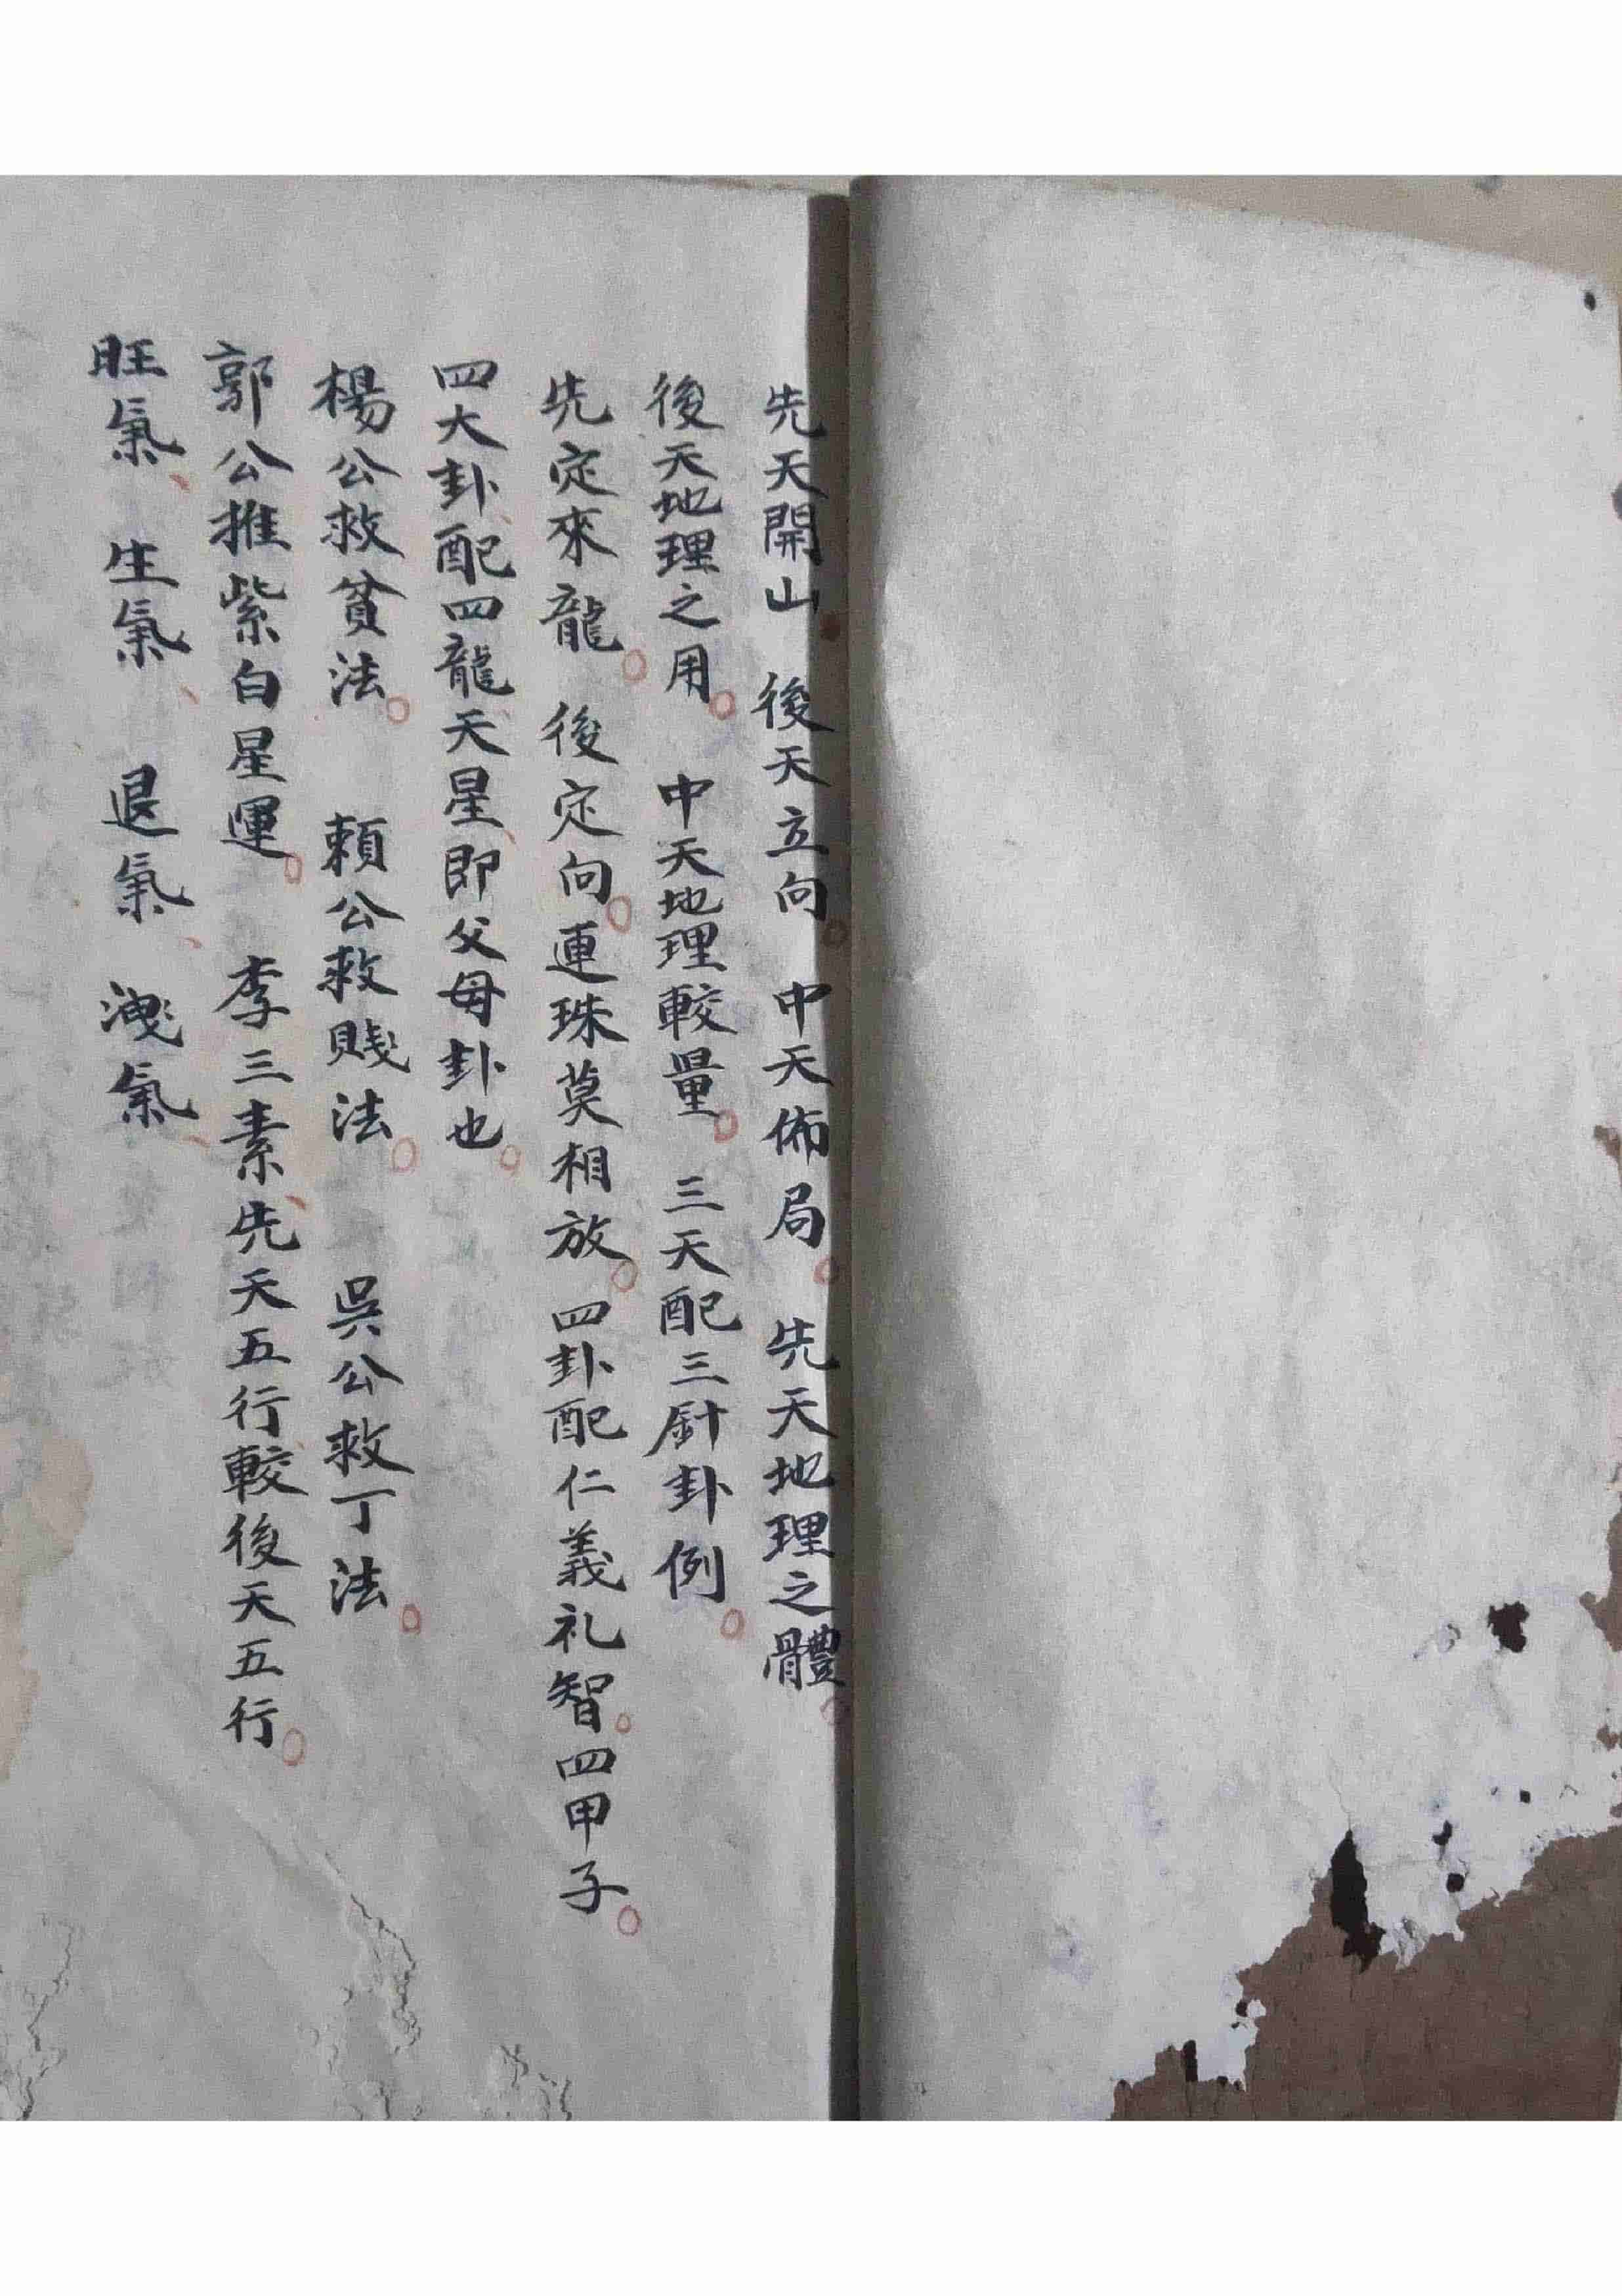 先天開山　後天立向。中天佈局。先天地理之體。
後天地理之用。　中天地理較量。三天配三針卦例。
先定來龍。後定向。連珠莫相放。四卦配仁義礼智。四甲子。
四大卦、配四龍、天星、即父母卦也。
楊公救貧法。　賴公救賤法。　吳公救丁法。
郭公推紫白星運。　李三素、先天五行、較後天五行。
旺氣、生氣、退氣、洩氣、